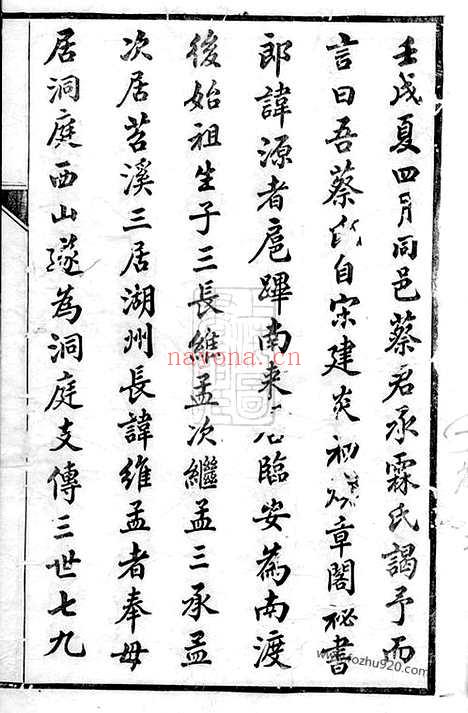 壬戌夏四月同邑蔡君承霖氏謁予而
言曰吾蔡氏自宋建炎初章閣祕書
郎諱源者扈蹕南来居臨安為南渡
後始祖生子三長維孟次繼孟三承孟
次居苕溪三居湖州長諱維孟者奉母
居洞庭西山遂為洞庭支傳三世七九
nayona.cn
www.fozhu920.com